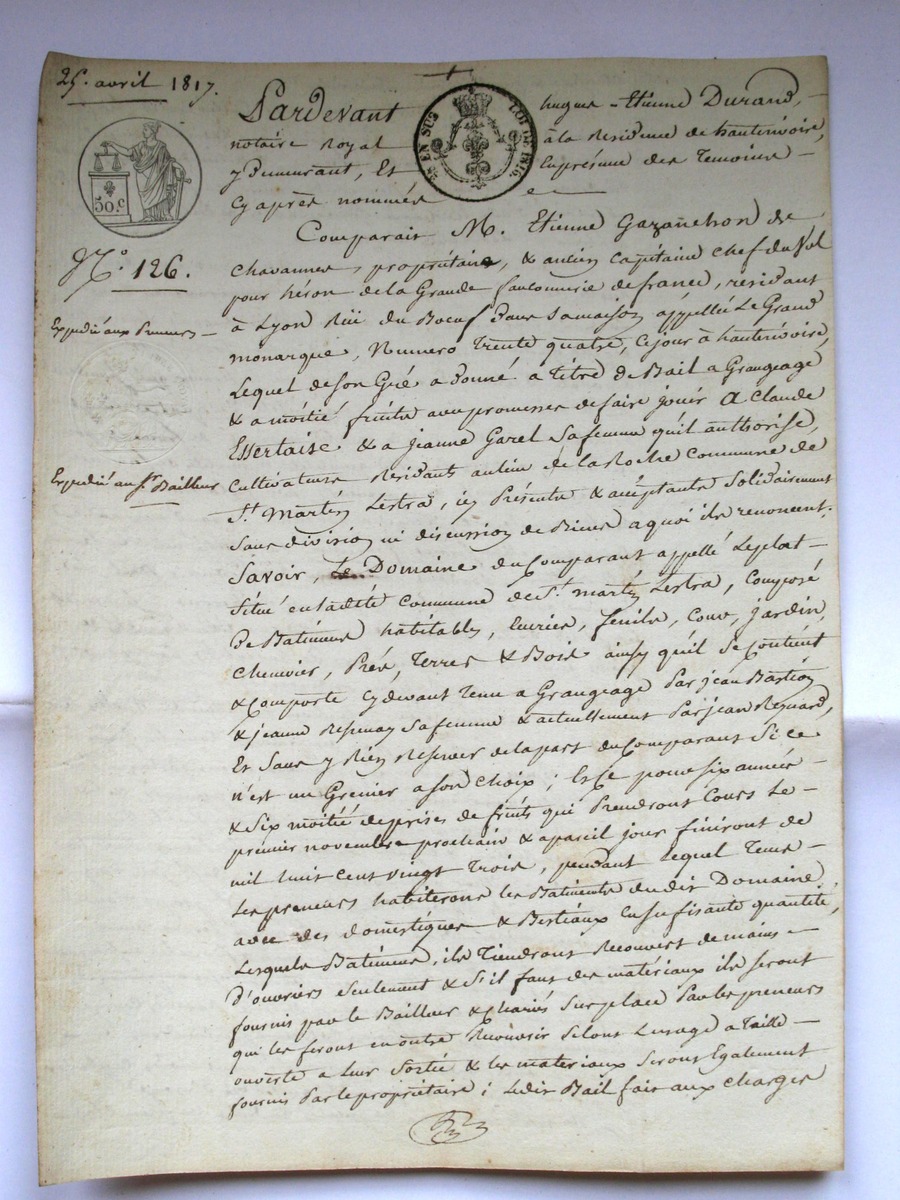 25. avril 1817.
50.c
N.º 126.
Expedié aux Preneurs
Expedié au Sr. Bailleur
EN SUS LOI DE 1816.
Pardevant hugues Etienne Durand,
notaire Royal à la Residence de hauterivoire,
y Demeurant, Et En présence des Temoins
Cy après nommés
Comparait M. Etienne Gazanchon de
Chavannes, propriétaire, & ancien Capitaine Chef du Vol
pour héron de la Grande fauconnerie de france, residant
à Lyon Rüe du Boeuf Dans Sa maison appellée Le Grand
monarque, Numero Trente quatre, Ce jour à hauterivoire,
Lequel de Son Gré a Donné à Titre de Bail a Grangeage
& a moitié fruits avec promesses de faire jouir A Claude
Essertaise & a jeanne Garel Sa femme qu'il authorise,
Cultivateurs Residants au lieu de la Roche Commune de
St. Martin Lestra, icy Présents & acceptants Solidairement
Sans division ni discussion de Biens a quoi ils renoncent.
Savoir, Le Domaine du Comparant appellé Leplat
Situé en ladite Commune de St. martin Lestra, Composé
De Batimens habitables, Ecuries, fenils, Cour, jardin,
Chenevier, Prés, Terres & Bois ainsy qu'il se Contient
& Comporte Cy devant Tenu a Grangeage Par jean Bastion
& jeanne Sa femme & actuellement Par jean Reynard,
Et Sans y Rien Reserver de la part du Comparant Si ce
n'est un Grenier a Son Choix ; Est ce pour six années
& Six moitié de prises de fruits qui Prendront Cours Le
premier novembre prochain & a pareil jour finiront de
mil huit Cent vingt Trois, pendant Lequel Tems
Les preneurs habiterons les Batiments du dit Domaine
avec des domestiques & Bestiaux En Sufisante quantité,
Lesquels Batimens, ils Tiendront Recouvert de mains
D'ouvriers Seulement & S'il faut des matériaux ils Seront
fournis par le Bailleur & Chariés Sur place Par les preneurs
qui les feront en outre Recouvrir Selons L'usage a Taille
ouverte a Leur Sortie & les materiaux Seront Egalement
fournis Par le propriétaire ; Ledit Bail fait aux Charges